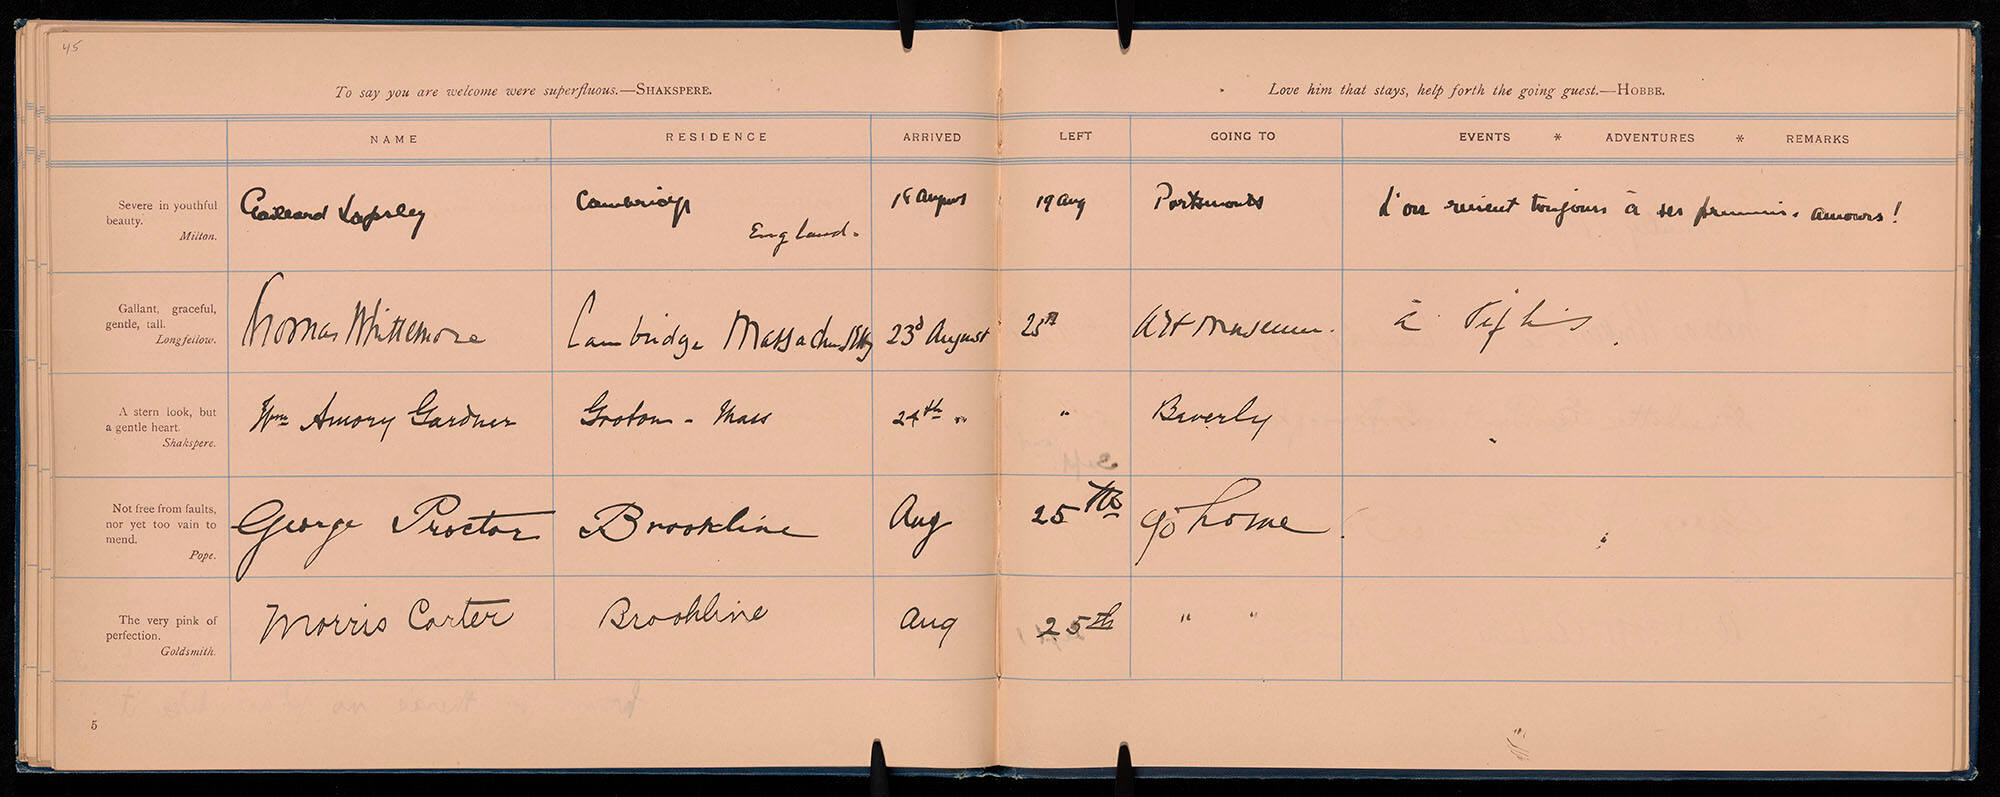 45
To say you are welcome were superfluous.—SHAKSPERE.
Love him that stays, help forth the going guest.—HOBBE.
NAME RESIDENCE ARRIVED LEFT GOING TO EVENTS * ADVENTURES * REMARKS
Severe in youthful
beauty.
Milton.
Gaillard Lapsley Cambridge
England. 18 August 19 Aug Portsmouth L'on revient toujours à ses premiers amours!
Gallant, graceful,
gentle, tall.
Longfellow.
Thomas Whittemore Cambridge Massachusetts 23d August 25th Art Museum. à Tiflis.
A stern look, but
a gentle heart.
Shakspere.
Wm Amory Gardner Groton - Mass 24th " " Beverly
Not free from faults,
nor yet too vain to
mend.
Pope.
George Proctor Brookline Aug 25th go home
The very pink of
perfection.
Goldsmith.
Morris Carter Brookline Aug 25th " "
5